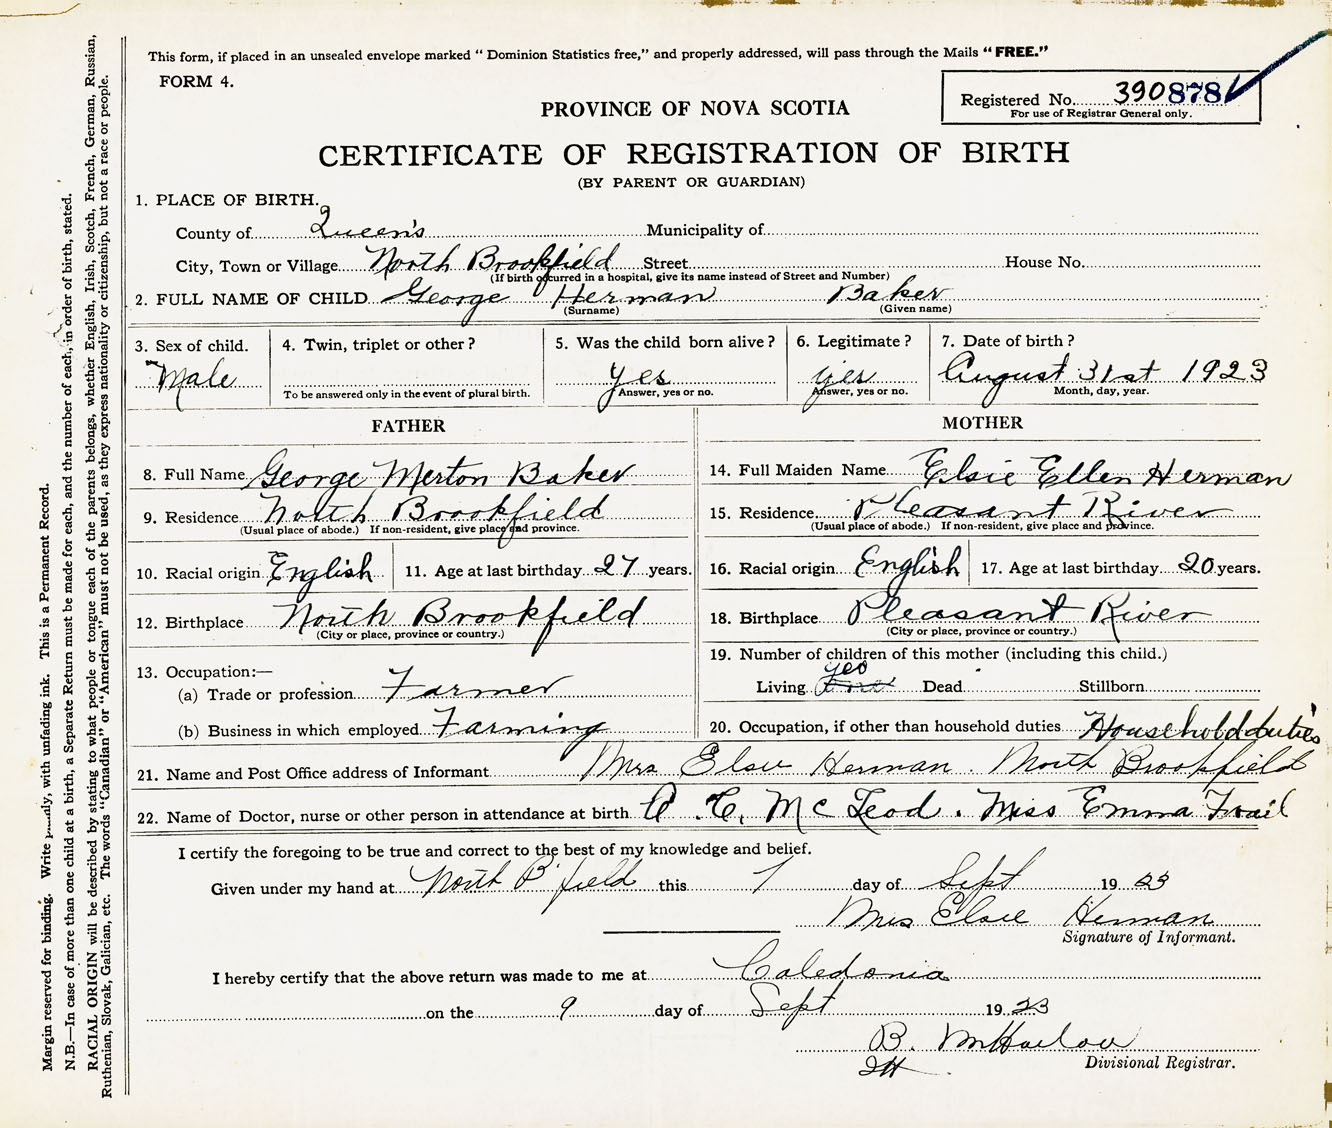 This form, if placed in an unsealed envelope marked " Dominion Statistics free," and properly addressed, will pass through the Mails "FREE."
FORM 4.
Registered No. 390878
For use of Registrar General only.
PROVINCE OF NOVA SCOTIA
CERTIFICATE OF REGISTRATION OF BIRTH
(BY PARENT OR GUARDIAN)
1. PLACE OF BIRTH.
County of Queen's Municipality of
City, Town or Village North Brookfield Street House No.
(If birth occurred in a hospital, give its name instead of Street and Number)
2. FULL NAME OF CHILD George Herman Baker
(Surname) (Given name)
3. Sex of child. 4. Twin, triplet or other? 5. Was the child born alive? 6. Legitimate? 7. Date of birth?
Male yes yes August 31st 1923
To be answered only in the event of plural birth. Answer, yes or no. Answer, yes or no. Month, day, year.
FATHER
8. Full Name George Merton Baker
9. Residence North Brookfield
(Usual place of abode.) If non-resident, give place and province.
10. Racial origin English 11. Age at last birthday 27 years.
12. Birthplace North Brookfield
(City or place, province or country.)
13. Occupation:—
(a) Trade or profession Farmer
(b) Business in which employed Farming
MOTHER
14. Full Maiden Name Elsie Ellen Herman
15. Residence Pleasant River
(Usual place of abode.) If non-resident, give place and province.
16. Racial origin English 17. Age at last birthday 20 years.
18. Birthplace Pleasant River
(City or place, province or country.)
19. Number of children of this mother (including this child.)
yes
Living Dead Stillborn
20. Occupation, if other than household duties Household duties
21. Name and Post Office address of Informant Mrs Elsie Herman. North Brookfield
22. Name of Doctor, nurse or other person in attendance at birth A. C. McLeod. Miss Emma Frail
I certify the foregoing to be true and correct to the best of my knowledge and belief.
Given under my hand at North B'field this 7 day of Sept 1923
Mrs Elsie Herman
Signature of Informant.
I hereby certify that the above return was made to me at Caledonia
on the 9 day of Sept 1923
B.
Divisional Registrar.
Margin reserved for binding. Write with unfading ink. This is a Permanent Record.
N.B.—In case of more than one child at a birth, a Separate Return must be made for each, and the number of each, in order of birth, stated.
RACIAL ORIGIN will be described by stating to what people or tongue each of the parents belongs, whether English, Irish, Scotch, French, German, Russian,
Ruthenian, Slovak, Galician, etc. The words "Canadian" or "American" must not be used, as they express nationality or citizenship, but not a race or people.